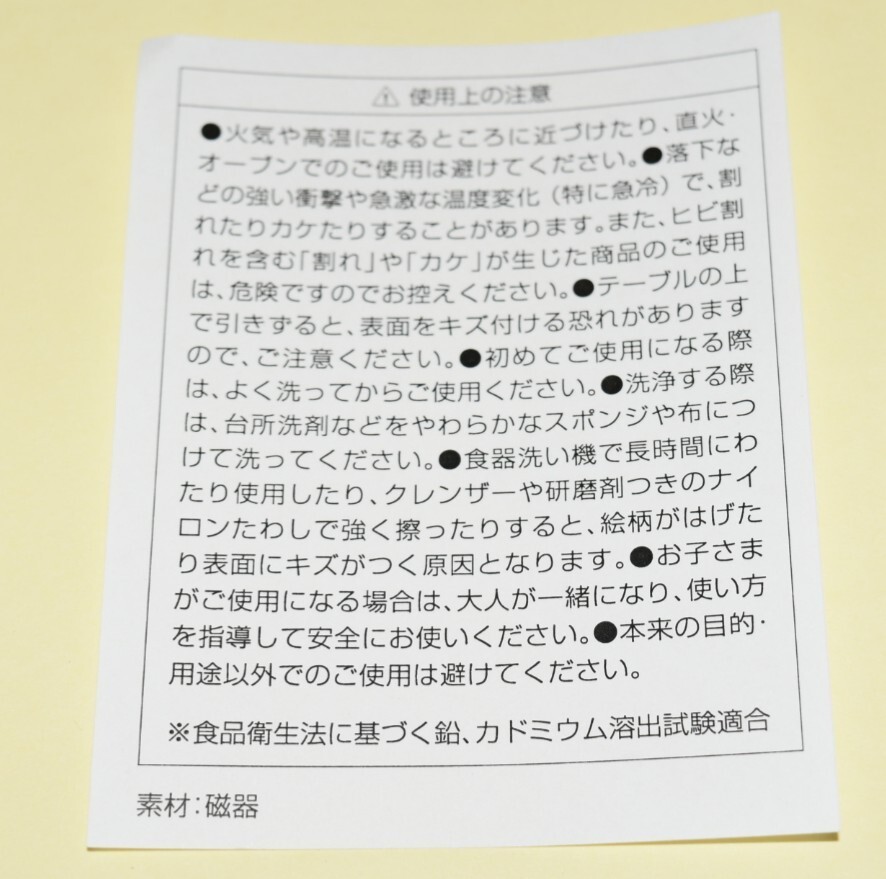 ⚠ 使用上の注意
●火気や高温になるところに近づけたり、直火・
オーブンでのご使用は避けてください。●落下な
どの強い衝撃や急激な温度変化（特に急冷）で、割
れたりカケたりすることがあります。また、ヒビ割
れを含む「割れ」や「カケ」が生じた商品のご使用
は、危険ですのでお控えください。●テーブルの上
で引きずると、表面をキズ付ける恐れがあります
ので、ご注意ください。●初めてご使用になる際
は、よく洗ってからご使用ください。●洗浄する際
は、台所洗剤などをやわらかなスポンジや布につ
けて洗ってください。●食器洗い機で長時間にわ
たり使用したり、クレンザーや研磨剤つきのナイ
ロンたわしで強く擦ったりすると、絵柄がはげた
り表面にキズがつく原因となります。●お子さま
がご使用になる場合は、大人が一緒になり、使い方
を指導して安全にお使いください。●本来の目的・
用途以外でのご使用は避けてください。
※食品衛生法に基づく鉛、カドミウム溶出試験適合
素材：磁器